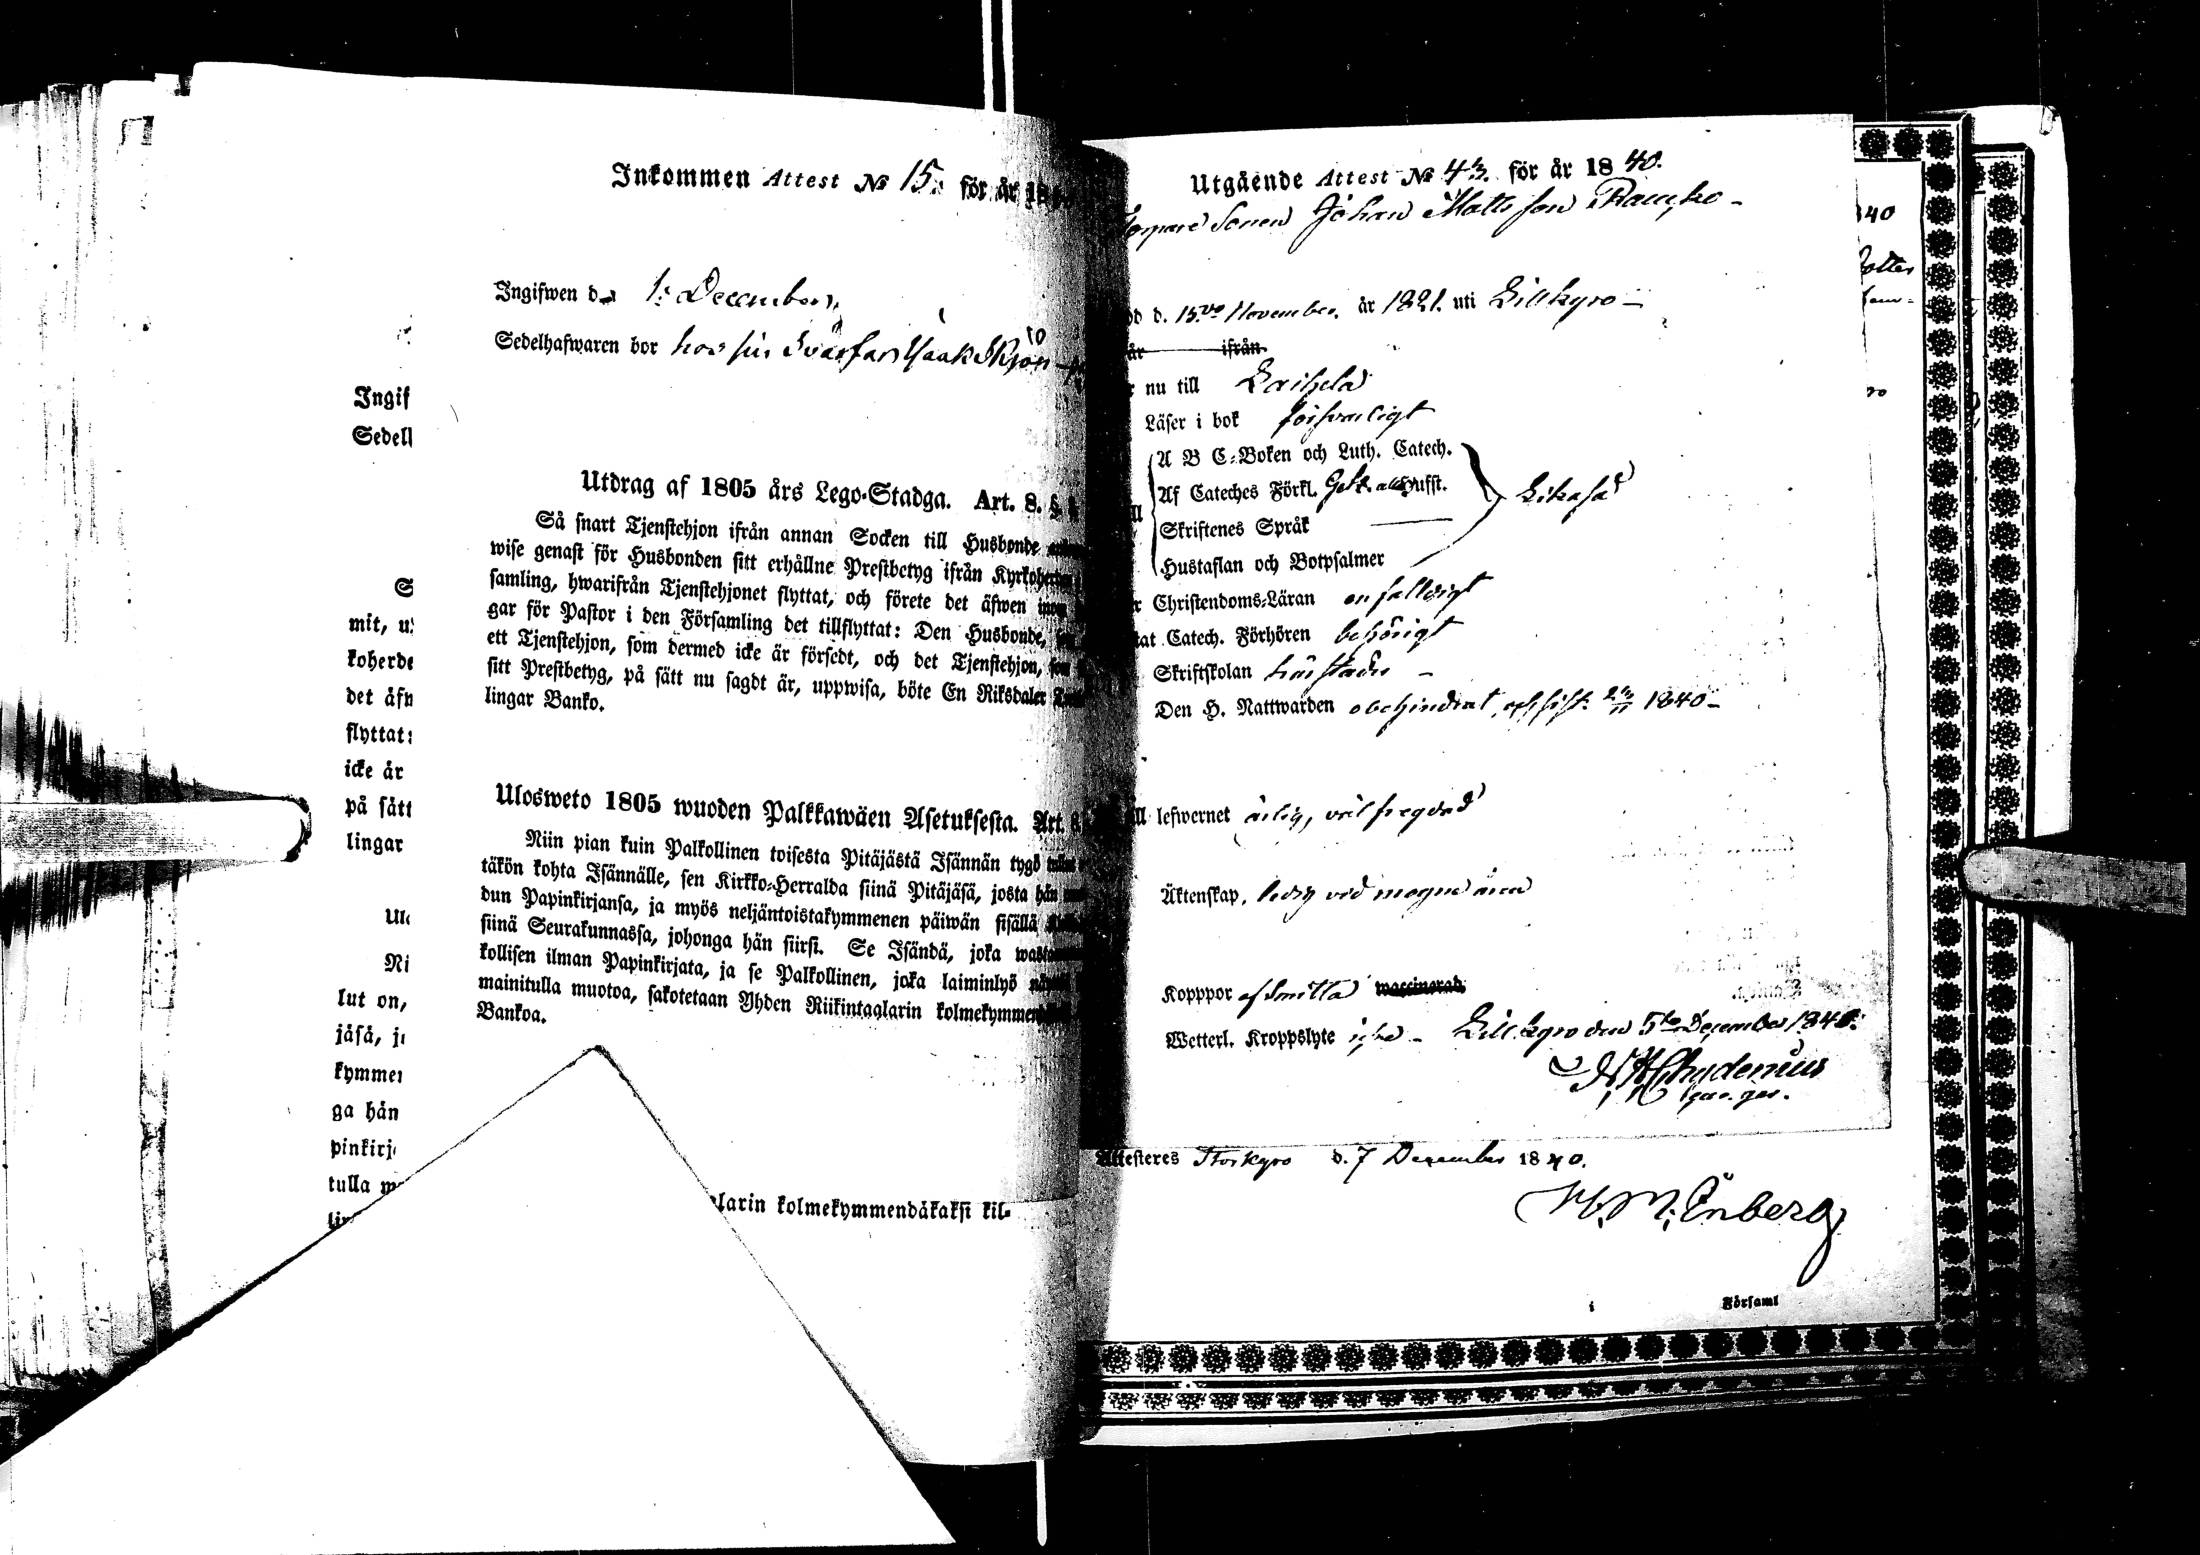 Inkommen Attest № 15. för år 18
Ingifwen d. 1: December
Sedelhafwaren bor hos sin Svärfar Isaak
Utdrag af 1805 års Lego-Stadga. Art. 8. §
Så snart Tjenstehjon ifrån annan Socken till Husbonde
wise genast för Husbonden sitt erhållne Prestbetyg ifrån Kyrkoherden
samling, hwarifrån Tjenstehjonet flyttat, och förete det äfwen inom
gar för Pastor i den Församling det tillflyttat: Den Husbonde,
ett Tjenstehjon, som dermed icke är försedt, och det Tjenstehjon, som
sitt Prestbetyg, på sätt nu sagdt är, uppwisa, böte En Riksdaler
lingar Banko.
Ulosweto 1805 wuoden Palkkawäen Asetuksesta. Art. 8.
Niin pian kuin Palkollinen toisesta Pitäjästä Isännän tygö
täkön kohta Isännälle, sen Kirkko-Herralda siinä Pitäjäsä, josta hän
dun Papinkirjansa, ja myös neljäntoistakymmenen päiwän sisällä
siinä Seurakunnassa, johonga hän siirsi. Se Isändä, joka
kollisen ilman Papinkirjata, ja se Palkollinen, joka laiminlyö
mainitulla muotoa, sakotetaan Yhden Riikintaalarin kolmekymmen
Bankoa.
Ingif
Sedell
S
mit, u
koherde
det äfw
flyttat:
icke är
på sätt
lingar
Ulo
Ni
lut on,
jäsä, jo
kymmen
ga hän
pinkirj
tulla m
larin kolmekymmendäkaksi kil-
Utgående Attest № 43. för år 1840.
Sonen Johan Mattsson
d. 15 November år 1821. uti Lillkyro
år ifrån
nu till Laihela
Läser i bok försvarligt
A B C-Boken och Luth. Catech.
Af Cateches Förkl. Hufst.
Skriftenes Språk
Hustaflan och Botpsalmer
Likaså
Christendoms-Läran enfaldigt
tat Catech. Förhören behörigt
Skriftskolan härstädes
Den H. Nattwarden obehindrat, och sist 1840
till lefwernet ärlig, väl fregdad
Äktenskap, ledig ved mogne åren
Kopppor af Smitta waccinerad
Wetterl. Kroppslyte icke Lillkyro den 5te December 1840.
Attesteres Storkyro d. 7 December 1840.
Enberg
i Församl
40